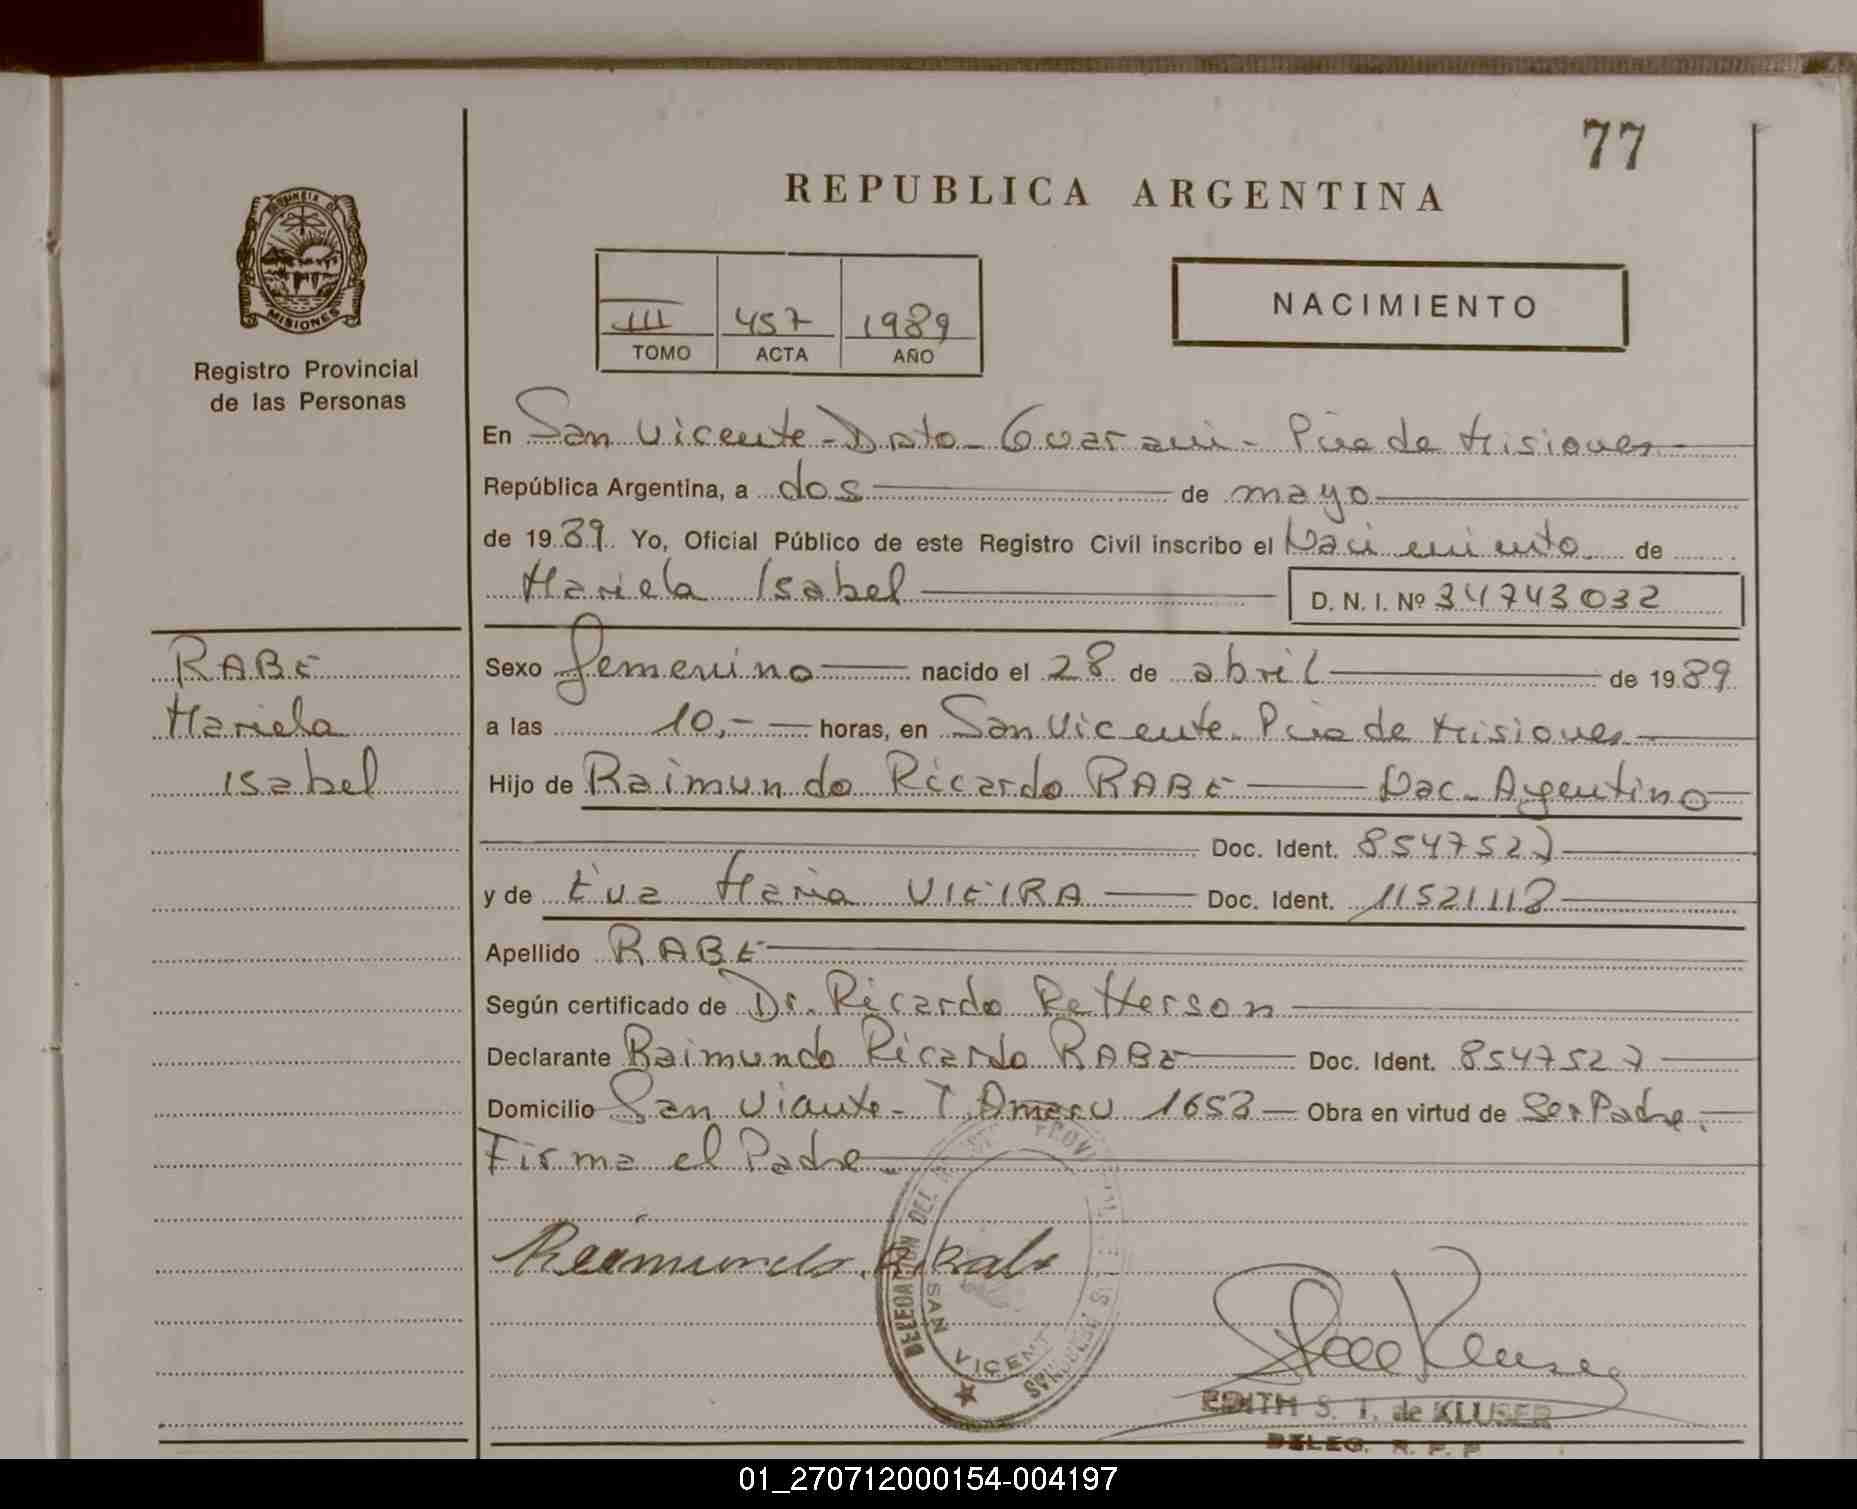 77
REPUBLICA ARGENTINA
MISIONES
Registro Provincial
de las Personas
III 457 1989
TOMO ACTA AÑO
NACIMIENTO
En San Vicente - Dpto - Guarani - Pcia de Misiones
República Argentina, a dos de mayo
de 1989 Yo, Oficial Público de este Registro Civil inscribo el Nacimiento de
Mariela Isabel D. N. I. Nº 34743032
RABE
Mariela
Isabel
Sexo femenino nacido el 28 de abril de 1989
a las 10,- horas, en San Vicente. Pcia de Misiones
Hijo de Raimundo Ricardo RABE Nac. Argentino
Doc. Ident. 8547527
y de Eva Maria VIEIRA Doc. Ident. 11521112
Apellido RABE
Según certificado de Dr. Ricardo Retterson
Declarante Raimundo Ricardo RABE Doc. Ident. 8547527
Domicilio San Vicente - T. Amaru 1653 Obra en virtud de Ser Padre.
Firma el Padre
Raimundo R. Rabe
DELEGACION DEL
SAN VICENTE
EDITH S. T. de KLUSER
DELEG. R. P. P
01_270712000154-004197